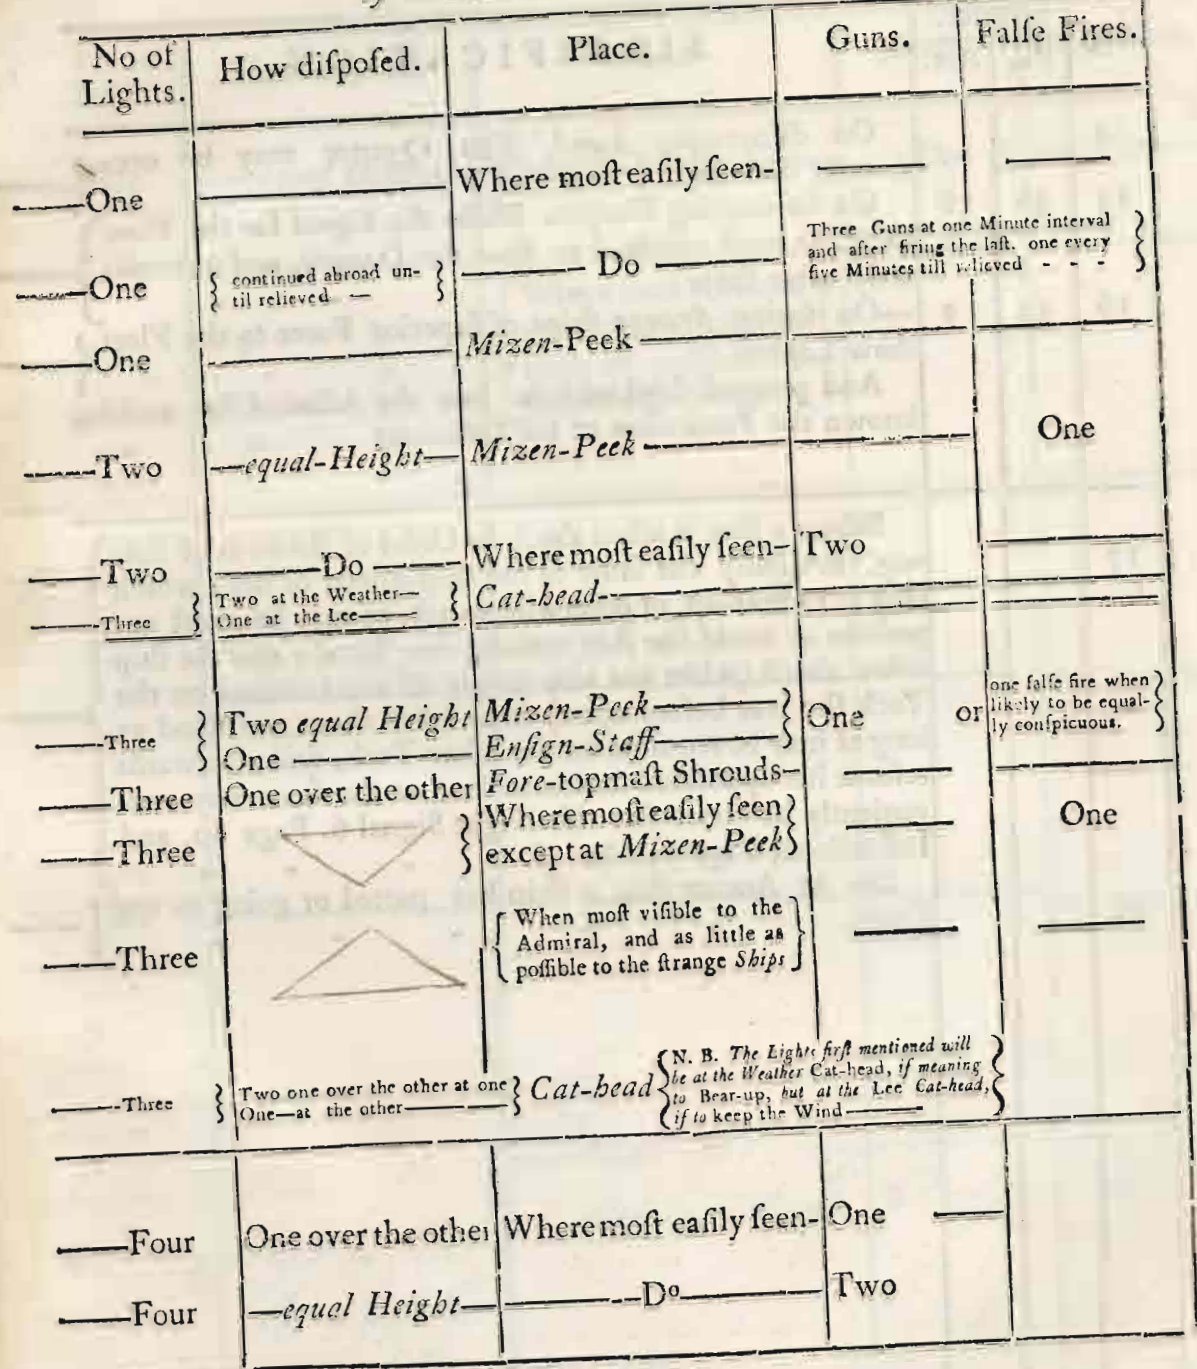 No of Lights. How diſpoſed. Place. Guns. Falſe Fires.
One Where moſt eaſily ſeen-
One { continued abroad un- } Do Three Guns at one Minute interval }
til relieved — and after firing the laſt. one every
five Minutes till relieved - - -
One Mizen-Peek
Two —equal-Height— Mizen-Peek One
Two Do Where moſt eaſily ſeen- Two
Three } Two at the Weather— } Cat-head-
One at the Lee—
Three } Two equal Height Mizen-Peek } One or one falſe fire when }
One Enſign-Staff likely to be equal-
ly conſpicuous.
Three One over the other Fore-topmaſt Shrouds-
Three } Where moſt eaſily ſeen } One
except at Mizen-Peek
Three { When moſt viſible to the }
Admiral, and as little as
poſſible to the ſtrange Ships
Three } Two one over the other at one } Cat-head { N. B. The Lights firſt mentioned will }
One—at the other— be at the Weather Cat-head, if meaning
to Bear-up, but at the Lee Cat-head,
if to keep the Wind—
Four One over the other Where moſt eaſily ſeen- One
Four —equal Height— Dº Two